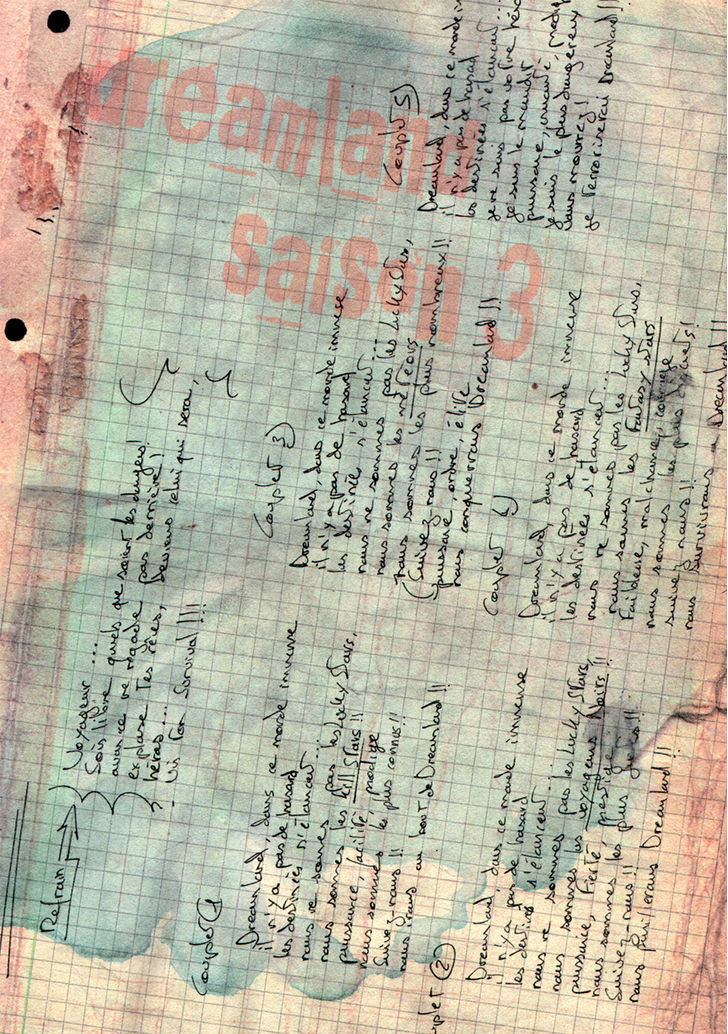 dreamland
saison 3
Refrain
Voyageur ....
Sois libre quels que soient les dangers!
avance ne regarde pas derrière!
explore Tes rêves,
Deviens celui qui sera,
héros ....
Survival!!!
Couplet 1
Dreamland, dans ce monde immense
il n'y a pas de hasard
les destinées s'élancent ....
nous ne sommes pas les lucky stars,
nous sommes les Kill Stars!!
puissance, facilité, prodige
nous sommes les plus connus!!
Suivez-nous!!
nous irons au bout de Dreamland!!
Couplet 2
Dreamland, dans ce monde immense
il n'y a pas de hasard
les destinées s'élancent ....
nous ne sommes pas les lucky stars,
nous sommes les voyageurs Noirs!!
puissance, fierté, prestige
nous sommes les plus
Suivez-nous!!
nous Dreamland!!
Couplet 3
Dreamland, dans ce monde immense
il n'y a pas de hasard
les destinées s'élancent ....
nous ne sommes pas les lucky stars,
nous sommes les meteors
nous sommes les plus nombreux!!
(Suivez-nous!!
puissance, ordre, élite
nous conquerrons Dreamland!!
Couplet 4
Dreamland, dans ce monde immense
il n'y a pas de hasard
les destinées s'élancent ....
nous ne sommes pas les lucky stars,
nous sommes les Fantasy stars
Faiblesse, malchance, courage
nous sommes les plus
suivez-nous!!
nous survivrons a Dreamland!!
Couplet 5
Dreamland, dans ce monde
il n'y a pas de hasard
les destinées s'élancent ....
je ne suis pas votre
je suis le maudit
puissance, cruauté,
je suis le plus dangereux
vous mourrez!
je terroriserai Dreamland!!